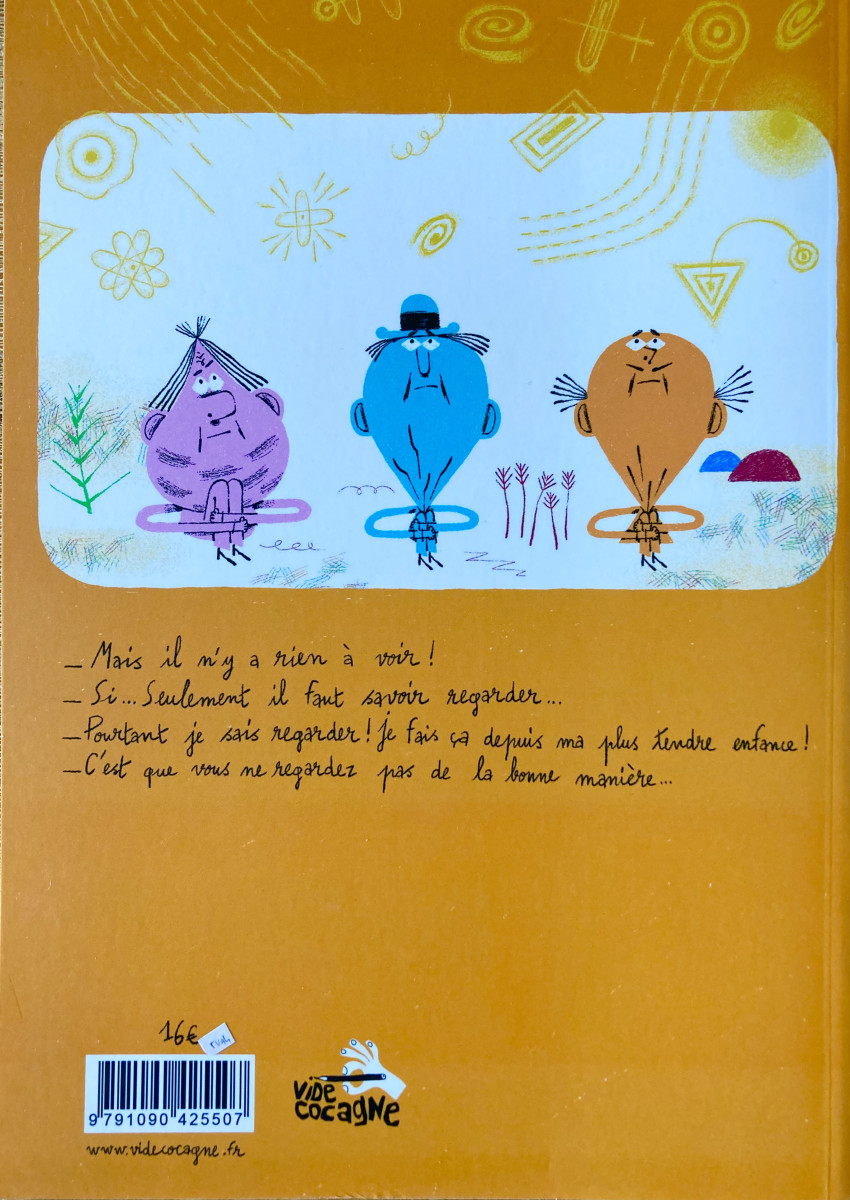 _ Mais il n'y a rien à voir !
_ Si... Seulement il faut savoir regarder...
_ Pourtant je sais regarder ! Je fais ça depuis ma plus tendre enfance !
_ C'est que vous ne regardez pas de la bonne manière...
16€
VIDE
COCAGNE
9 791090 425507
www.videcocagne.fr